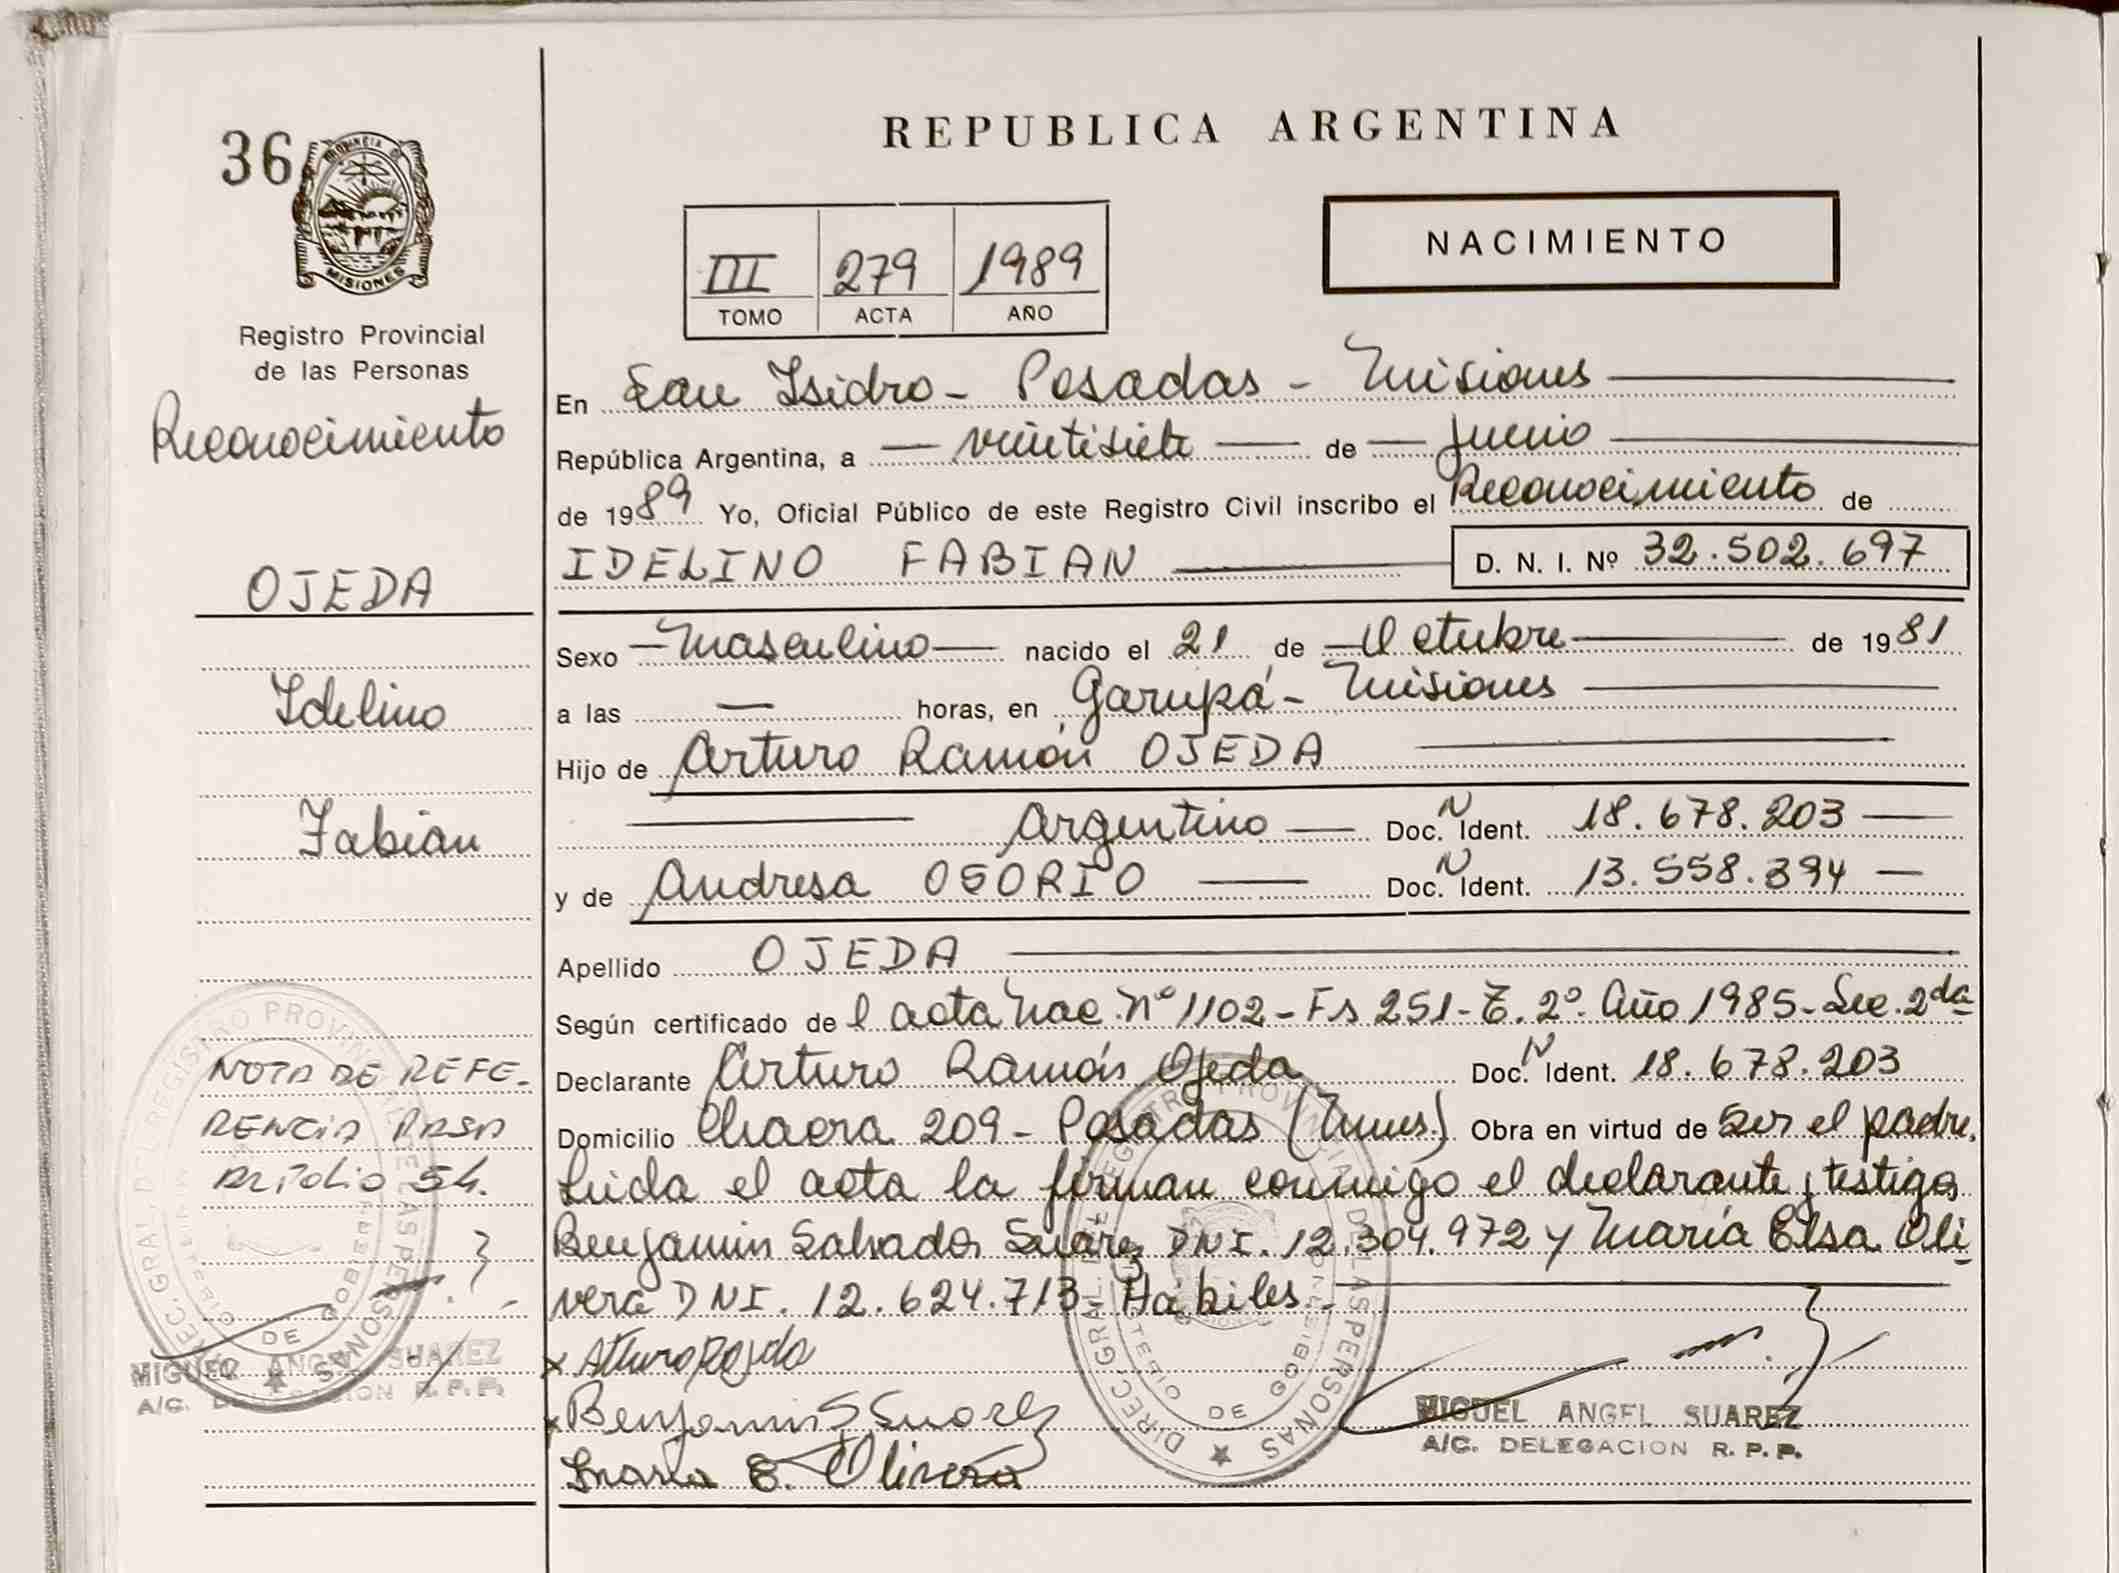 REPUBLICA ARGENTINA
36
PROVINCIA DE
MISIONES
Registro Provincial
de las Personas
NACIMIENTO
III 279 1989
TOMO ACTA AÑO
Reconocimiento
OJEDA
Idelino
Fabian
NOTA DE REFE-
RENCIA PASA
AL FOLIO 54.
MIGUEL ANGEL SUAREZ
A/C. DELEGACION R. P. P.
En San Isidro - Posadas - Misiones
República Argentina, a veintisiete de Junio
de 1989 Yo, Oficial Público de este Registro Civil inscribo el Reconocimiento de
IDELINO FABIAN D. N. I. Nº 32.502.697
Sexo Masculino nacido el 21 de Octubre de 1981
a las — horas, en Garupá - Misiones
Hijo de Arturo Ramón OJEDA
Argentino Doc. N Ident. 18.678.203
y de Andresa OSORIO Doc. N Ident. 13.558.394
Apellido OJEDA
Según certificado de l acta Nac. Nº 1102 - Fs 251 - T. 2º. Año 1985 - Sec. 2da
Declarante Arturo Ramón Ojeda Doc. N Ident. 18.678.203
Domicilio Chacra 209 - Posadas (Mnes.) Obra en virtud de Ser el padre.
Leida el acta la firman conmigo el declarante y testigos
Benjamin Salvador Suárez DNI. 12.304.972 y María Elsa Oli
vera DNI. 12.624.713 - Hábiles.
x Arturo R Ojeda
x Benjamin S Suarez
Maria E. Olivera
MIGUEL ANGEL SUAREZ
A/C. DELEGACION R. P. P.
DIREC. GRAL. DEL REGISTRO PROVINCIAL DE LAS PERSONAS